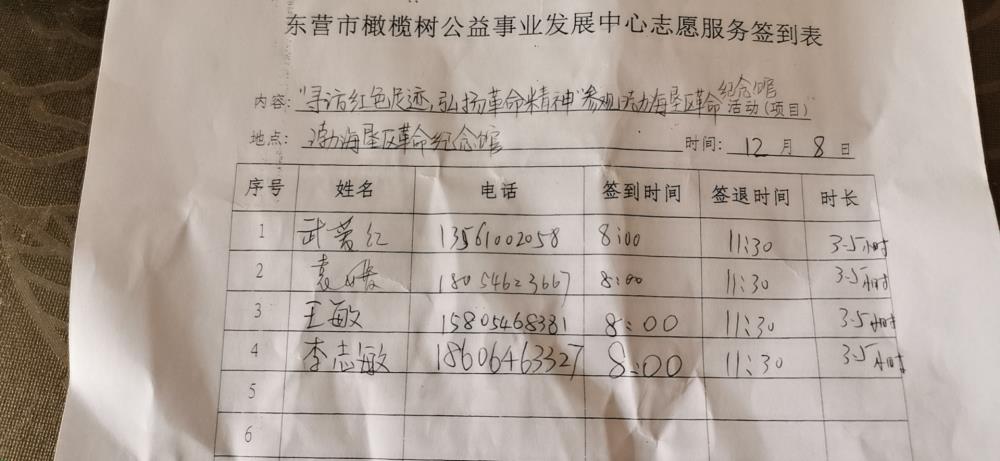 东营市橄榄树公益事业发展中心志愿服务签到表
内容："寻访红色足迹，弘扬革命精神"参观渤海垦区革命纪念馆活动（项目）
地点：渤海垦区革命纪念馆 时间：12月8日
序号 姓名 电话 签到时间 签退时间 时长
1 武 红 13561002058 8:00 11:30 3.5小时
2 袁 18054623667 8:00 11:30 3.5小时
3 王敏 15805468381 8:00 11:30 3.5小时
4 李志敏 18606463327 8:00 11:30 3.5小时
5
6